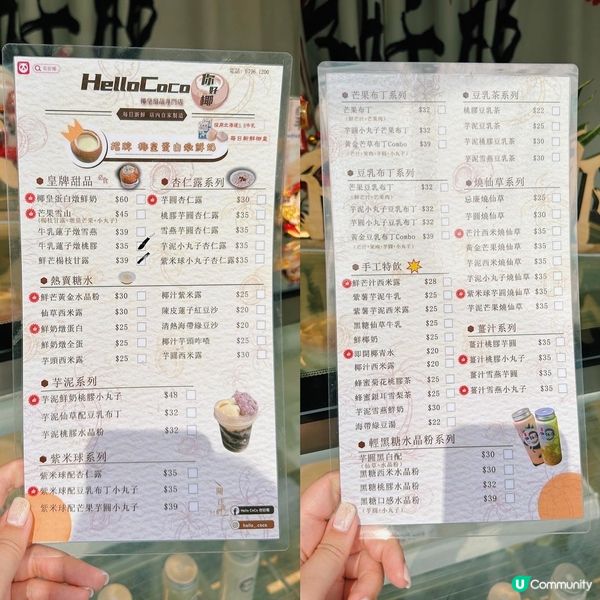 電話: 6796 1200
HelloCoco
你好椰
椰皇甜品專門店
每日新鮮 店內自家製造
採用北海道3.6牛乳
每日新鮮椰皇
招牌 椰皇蛋白燉鮮奶
皇牌甜品 必食
椰皇蛋白燉鮮奶 $60
芒果雪山 $45
牛乳蓮子燉雪燕 $39
牛乳蓮子燉桃膠 $35
鮮芒楊枝甘露 $39
杏仁露系列
芋圓杏仁露 $30
桃膠芋圓杏仁露 $35
雪燕芋圓杏仁露 $35
芋泥小丸子杏仁露 $35
紫米球小丸子杏仁露 $35
熱賣糖水
鮮芒黃金水晶粉 $30
仙草西米露 $30
鮮奶燉蛋白 $25
鮮奶燉全蛋 $25
芋頭西米露 $25
椰汁紫米露 $25
陳皮蓮子紅豆沙 $20
清熱海帶綠豆沙 $20
椰汁芋頭喳咋 $25
芋圓西米露 $30
芋泥系列
芋泥鮮奶桃膠小丸子 $48
芋泥仙草配豆乳布丁 $32
芋泥桃膠水晶粉 $32
紫米球系列
紫米球配杏仁露 $35
紫米球配豆乳布丁小丸子 $35
紫米球配芒果芋圓小丸子 $39
Hello CoCo 你好椰
hello_coco
芒果布丁系列
芒果布丁 $32
芋圓小丸子芒果布丁 $32
黃金芒草布丁Combo $39
豆乳布丁系列
芒果豆乳布丁 $32
芋泥小丸子豆乳布丁 $32
芋圓小丸子豆乳布丁 $32
黃金豆乳布丁Combo $39
手工特飲
鮮芒汁西米露 $28
紫薯芋泥牛乳
紫薯芋泥西米露
黑糖仙草牛乳
鮮椰奶
即開椰青水
椰汁西米露
蜂蜜菊花桃膠茶
蜂蜜銀耳雪梨茶
芋泥雪燕鮮奶 $30
海帶綠豆湯 $22
輕黑糖水晶粉系列
芋圓黑白配 $30
(仙草+水晶粉)
黑糖西米水晶粉 $30
黑糖桃膠水晶粉 $32
黑糖口感水晶粉 $39
(芋圓+小丸子)
豆乳茶系列
桃膠豆乳茶 $22
芋泥豆乳茶 $25
芋圓豆乳茶 $25
芋泥雪燕豆乳茶 $30
燒仙草系列
芋圓燒仙草 $30
芒汁西米燒仙草 $35
黃金芒果燒仙草 $35
芋泥西米燒仙草 $35
芋泥小丸子燒仙草 $35
紫米球芋圓燒仙草 $35
芋泥芒果燒仙草 $35
薑汁系列
薑汁桃膠芋圓 $30
薑汁桃膠小丸子 $30
薑汁雪燕芋圓 $30
薑汁雪燕小丸子 $30
U Community